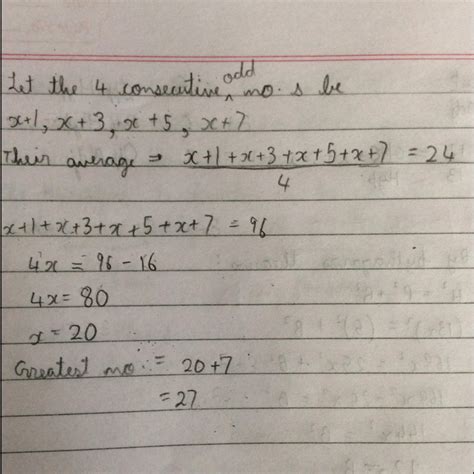 Let the 4 consecutive odd no.s be
x+1, x+3, x+5, x+7
Their average ⇒ x+1+x+3+x+5+x+7 = 24
4
x+1+x+3+x+5+x+7 = 96
4x = 96-16
4x = 80
x = 20
Greatest no. = 20+7
= 27